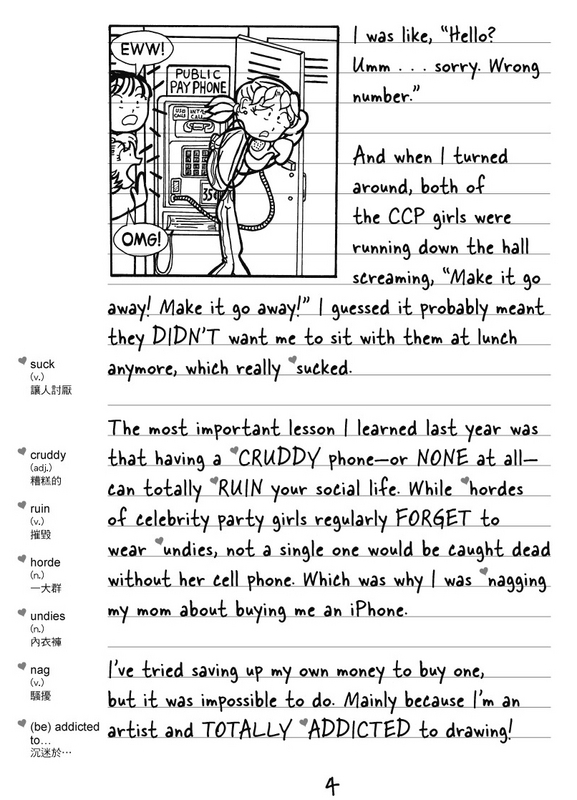 EWW!
PUBLIC
PAY PHONE
35¢
OMG!
I was like, "Hello?
Umm . . . sorry. Wrong
number."
And when I turned
around, both of
the CCP girls were
running down the hall
screaming, "Make it go
away! Make it go away!" I guessed it probably meant
they DIDN'T want me to sit with them at lunch
anymore, which really sucked.
suck
(v.)
讓人討厭
The most important lesson I learned last year was
that having a CRUDDY phone—or NONE at all—
can totally RUIN your social life. While hordes
of celebrity party girls regularly FORGET to
wear undies, not a single one would be caught dead
without her cell phone. Which was why I was nagging
my mom about buying me an iPhone.
cruddy
(adj.)
糟糕的
ruin
(v.)
摧毀
horde
(n.)
一大群
undies
(n.)
內衣褲
nag
(v.)
騷擾
(be) addicted
to…
沉迷於…
I've tried saving up my own money to buy one,
but it was impossible to do. Mainly because I'm an
artist and TOTALLY ADDICTED to drawing!
4